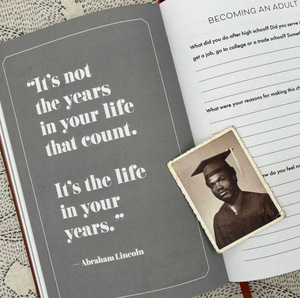 “It’s not
the years
in your life
that count.
It’s the life
in your
years.”
— Abraham Lincoln
BECOMING AN ADULT
What did you do after high school? Did you serve
get a job, go to college or a trade school? Somet
What were your reasons for making this ch
How do you feel